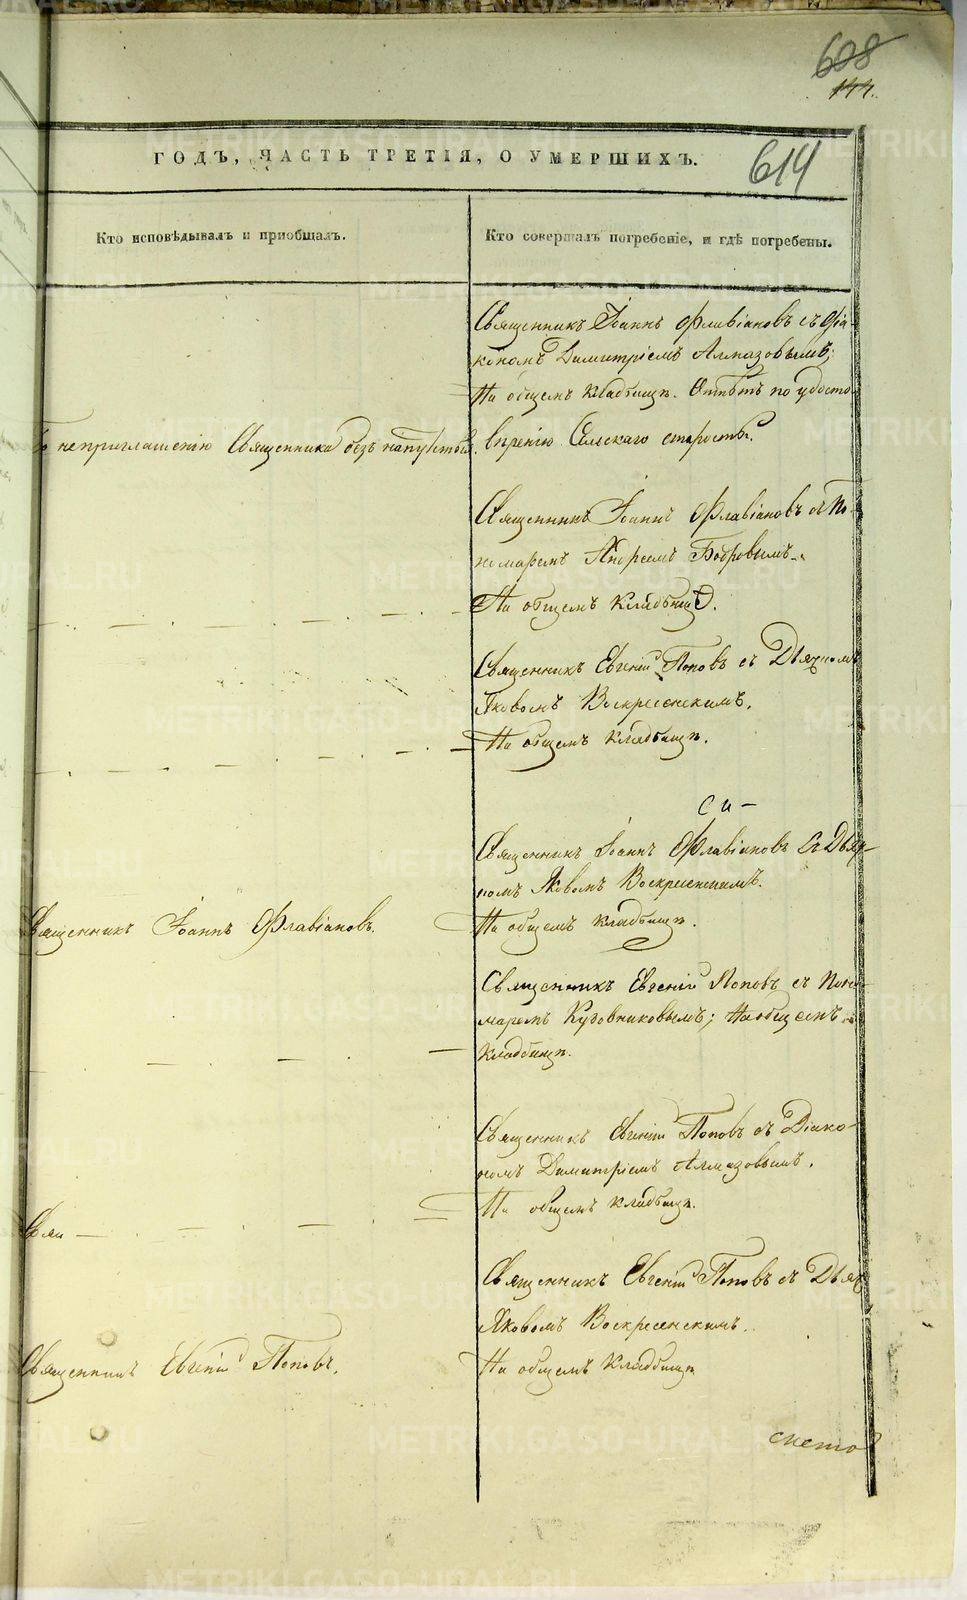 608
144.
ГОДЪ, ЧАСТЬ ТРЕТІЯ, О УМЕРШИХЪ.
614
Кто исповѣдывалъ и пріобщалъ.
Кто совершалъ погребеніе, и гдѣ погребены.
Священникъ Іоаннъ Флавіановъ съ Діа-
кономъ Димитріемъ Алмазовымъ;
На общемъ кладбищѣ. Отпѣтъ по удосто-
неприглашенію Священника безъ напутствія.
вѣренію Сельскаго старосты.
Священникъ Іоаннъ Флавіановъ съ По-
номаремъ Андреемъ Бобровымъ.
На общемъ кладбищѣ.
Священникъ Евгеній Поповъ съ Дьячкомъ
Яковомъ Воскресенскимъ.
На общемъ кладбищѣ.
си-
Священникъ Іоаннъ Флавіановъ съ Дьяч-
комъ Яковомъ Воскресенскимъ.
Священникъ Іоаннъ Флавіановъ.
На общемъ кладбищѣ.
Священникъ Евгеній Поповъ съ Поно-
маремъ Кузовниковымъ; На общемъ
кладбищѣ.
Священникъ Евгеній Поповъ съ Діако-
номъ Димитріемъ Алмазовымъ.
На общемъ кладбищѣ.
Священникъ Евгеній Поповъ съ Дьяч
Яковомъ Воскресенскимъ.
Священникъ Евгеній Поповъ.
На общемъ кладбищѣ
METRIKI.GASO-URAL.RU